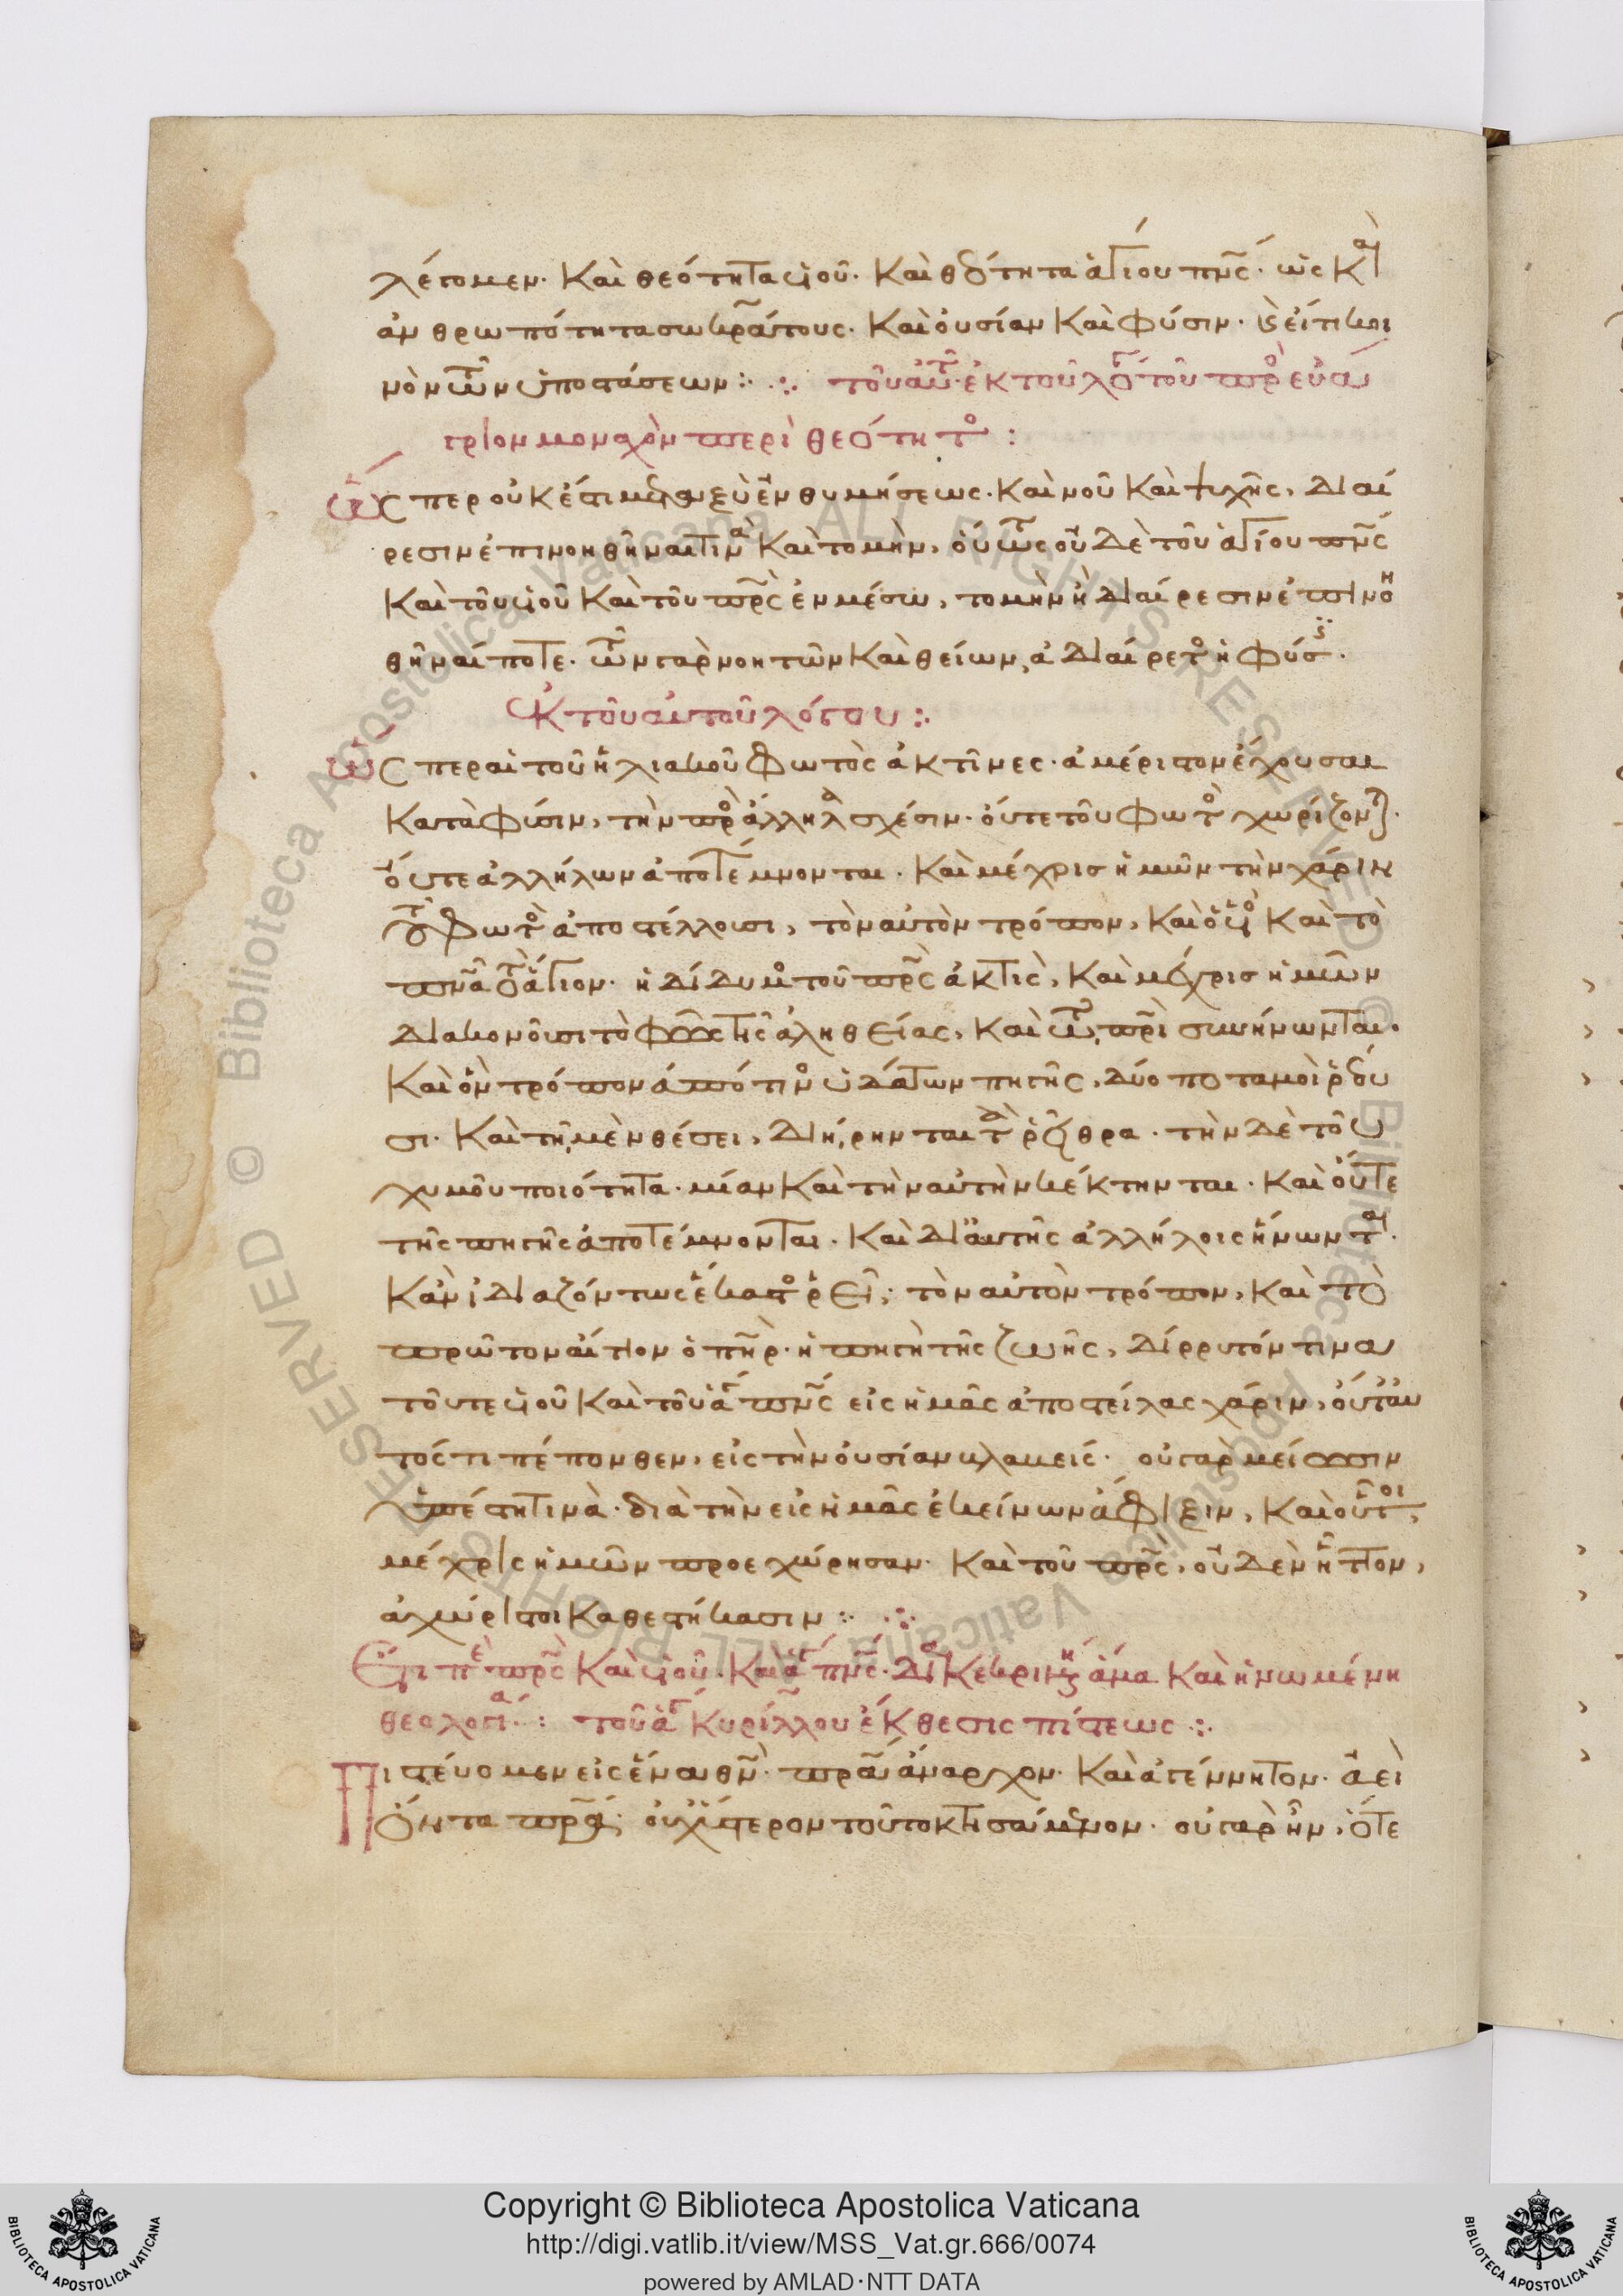 λέγομεν· καὶ θεότητα υἱοῦ· καὶ θεότητα ἁγίου πνς· ὡς καὶ
ἀνθρωπότητα σωκράτους· καὶ οὐσίαν καὶ φύσιν· εἴ τι κοι
νὸν τῶν ὑποστάσεων :· ∴ τοῦ αὐτοῦ· ἐκ τοῦ λόγου τοῦ πρὸς εὐά
γριον μοναχὸν περὶ θεότητος :
ὥσπερ οὐκ ἔστι μεταξὺ ἐνθυμήσεως· καὶ νοῦ καὶ ψυχῆς, διαί
ρεσιν ἐπινοηθῆναι τινὰ καὶ τομὴν, οὕτως οὐδὲ τοῦ ἁγίου πνς
καὶ τοῦ υἱοῦ καὶ τοῦ πρς ἐν μέσω, τομὴν ἢ διαίρεσιν ἐπινοη
θῆναί ποτε· τῶν γὰρ νοητῶν καὶ θείων, ἀδιαίρετος ἡ φύσις·
ἐκ τοῦ αὐτοῦ λόγου :·
ὥσπερ αἱ τοῦ ἡλιακοῦ φωτὸς ἀκτῖνες· ἀμέριστον ἔχουσαι
κατὰ φύσιν, τὴν πρὸς ἄλληλα σχέσιν· οὔτε τοῦ φωτὸς χωρίζονται·
οὔτε ἀλλήλων ἀποτέμνονται· καὶ μέχρις ἡμῶν τὴν χάριν
τοῦ φωτὸς ἀποστέλλουσι, τὸν αὐτὸν τρόπον, καὶ ὁ υἱὸς καὶ τὸ
πνα τὸ ἅγιον· ἡ δίδυμος τοῦ πρς ἀκτὶς, καὶ μέχρις ἡμῶν
διακονοῦσι τὸ φῶς τῆς ἀληθείας, καὶ τῶ πρὶ συνήνωνται·
καὶ ὃν τρόπον ἀπό τινος ὑδάτων πηγῆς, δύο ποταμοὶ ῥέου
σι· καὶ τῇ μὲν θέσει, διήρηνται τὰ ῥεῖθρα· τὴν δὲ τοῦ
χυμοῦ ποιότητα· μίαν καὶ τὴν αὐτὴν κέκτηνται· καὶ οὔτε
τῆς πηγῆς ἀποτέμνονται· καὶ δι' αὐτῆς ἀλλήλοις ἥνωνται·
κἂν ἰδιαζόντως ἕκαστος ῥεῖ; τὸν αὐτὸν τρόπον, καὶ τὸ
πρῶτον αἴτιον ὁ πηρ· ἡ πηγὴ τῆς ζωῆς, δίρρυτόν τινα
τοῦτε υἱοῦ καὶ τοῦ ἁγίου πνς εἰς ἡμᾶς ἀποστείλας χάριν, οὔτ' αὐ
τός τι πέπονθεν, εἰς τὴν οὐσίαν κλαπείς· οὐ γὰρ μείωσιν
ὑπέστη τινὰ· διὰ τὴν εἰς ἡμᾶς ἐκείνων ἄφιξιν, καὶ οὗτοι,
μέχρις ἡμῶν προεχώρησαν· καὶ τοῦ πρς, οὐδὲν ἧττον,
ἀχώριστοι καθεστήκασιν :· ∴
Ἔτι περὶ πρς καὶ υἱοῦ· καὶ ἁγίου πνς· διακεκριμένη ἅμα καὶ ἡνωμένη
θεολογία· : τοῦ ἁγίου κυρίλλου ἔκθεσις πίστεως :·
Πιστεύομεν εἰς ἕνα θν· πρα ἄναρχον· καὶ ἀγέννητον· ἀεὶ
ὄντα πρα· οὐχ ὕστερον τοῦτο κτησάμενον· οὐ γὰρ ἦν, ὅτε
Copyright © Biblioteca Apostolica Vaticana
http://digi.vatlib.it/view/MSS_Vat.gr.666/0074
powered by AMLAD·NTT DATA